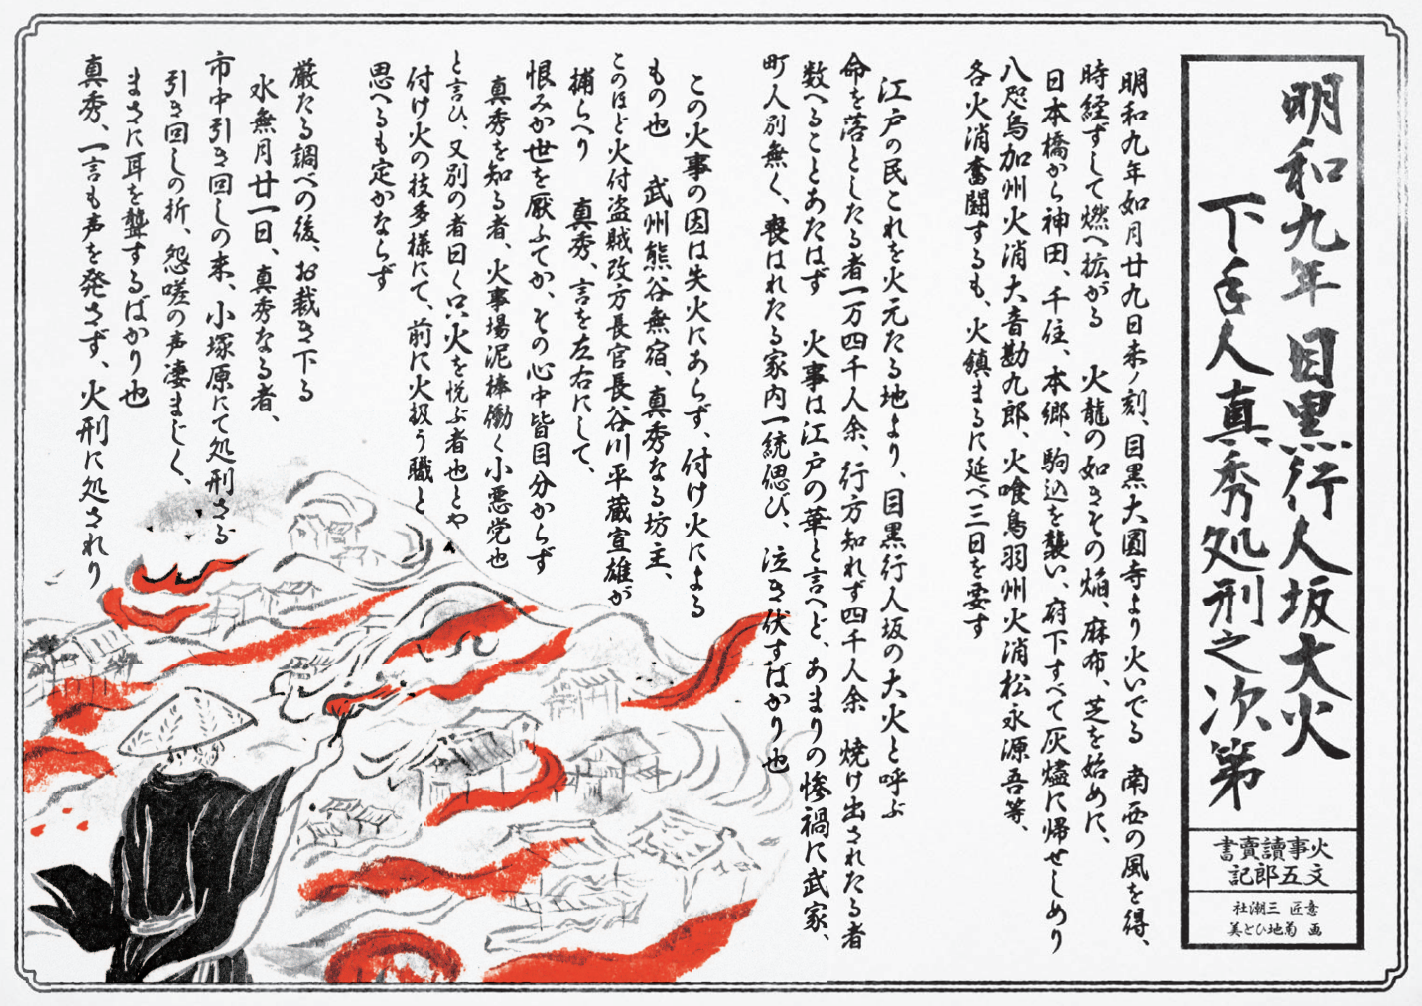 明和九年 目黒行人坂大火
下手人真秀処刑之次第
火事讀賣書
文五郎記
意匠 三潮社
画 菊地ひと美
明和九年如月廿九日未ノ刻、目黒大圓寺より火いでる 南西の風を得、
時経ずして燃へ拡がる 火龍の如きその焔、麻布、芝を始めに、
日本橋から神田、千住、本郷、駒込を襲い、府下すべて灰燼に帰せしめり
八咫烏加州火消大音勘九郎、火喰鳥羽州火消松永源吾等、
各火消奮闘するも、火鎮まるに延べ三日を要す
江戸の民これを火元たる地より、目黒行人坂の大火と呼ぶ
命を落としたる者一万四千人余、行方知れず四千人余 焼け出されたる者
数へることあたはず 火事は江戸の華と言へど、あまりの惨禍に武家、
町人別無く、喪はれたる家内一統偲び、泣き伏すばかり也
この火事の因は失火にあらず、付け火による
もの也 武州熊谷無宿、真秀なる坊主、
このほど火付盗賊改方長官長谷川平蔵宣雄が
捕らへり 真秀、言を左右にして、
恨みか世を厭ふてか、その心中皆目分からず
真秀を知る者、火事場泥棒働く小悪党也
と言ひ、又別の者曰く只火を悦ぶ者也とや
付け火の技多様にて、前に火扱う職と
思へるも定かならず
厳たる調べの後、お裁き下る
水無月廿一日、真秀なる者、
市中引き回しの末、小塚原にて処刑さる
引き回しの折、怨嗟の声凄まじく、
まさに耳を聾するばかり也
真秀、一言も声を発さず、火刑に処されり